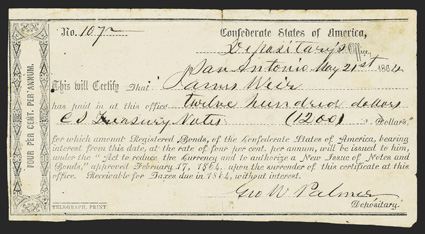 No. 107
Confederate States of America,
Depositary's Office,
San Antonio May 21st 1864
This will Certify That James Weir
has paid in at this office twelve hundred dollars
C S Treasury Notes (1200) Dollars
for which amount Registered Bonds, of the Confederate States of America, bearing interest
from this date, at the rate of four per cent. per annum, will be issued to him,
under the "Act to reduce the Currency and to authorize a New Issue of Notes and
Bonds," approved February 17, 1864, upon the surrender of this certificate at this
office. Receivable for Taxes due in 1864, without interest.
Geo W Palmer
Depositary.
TELEGRAPH, PRINT
FOUR PER CENT. PER ANNUM.